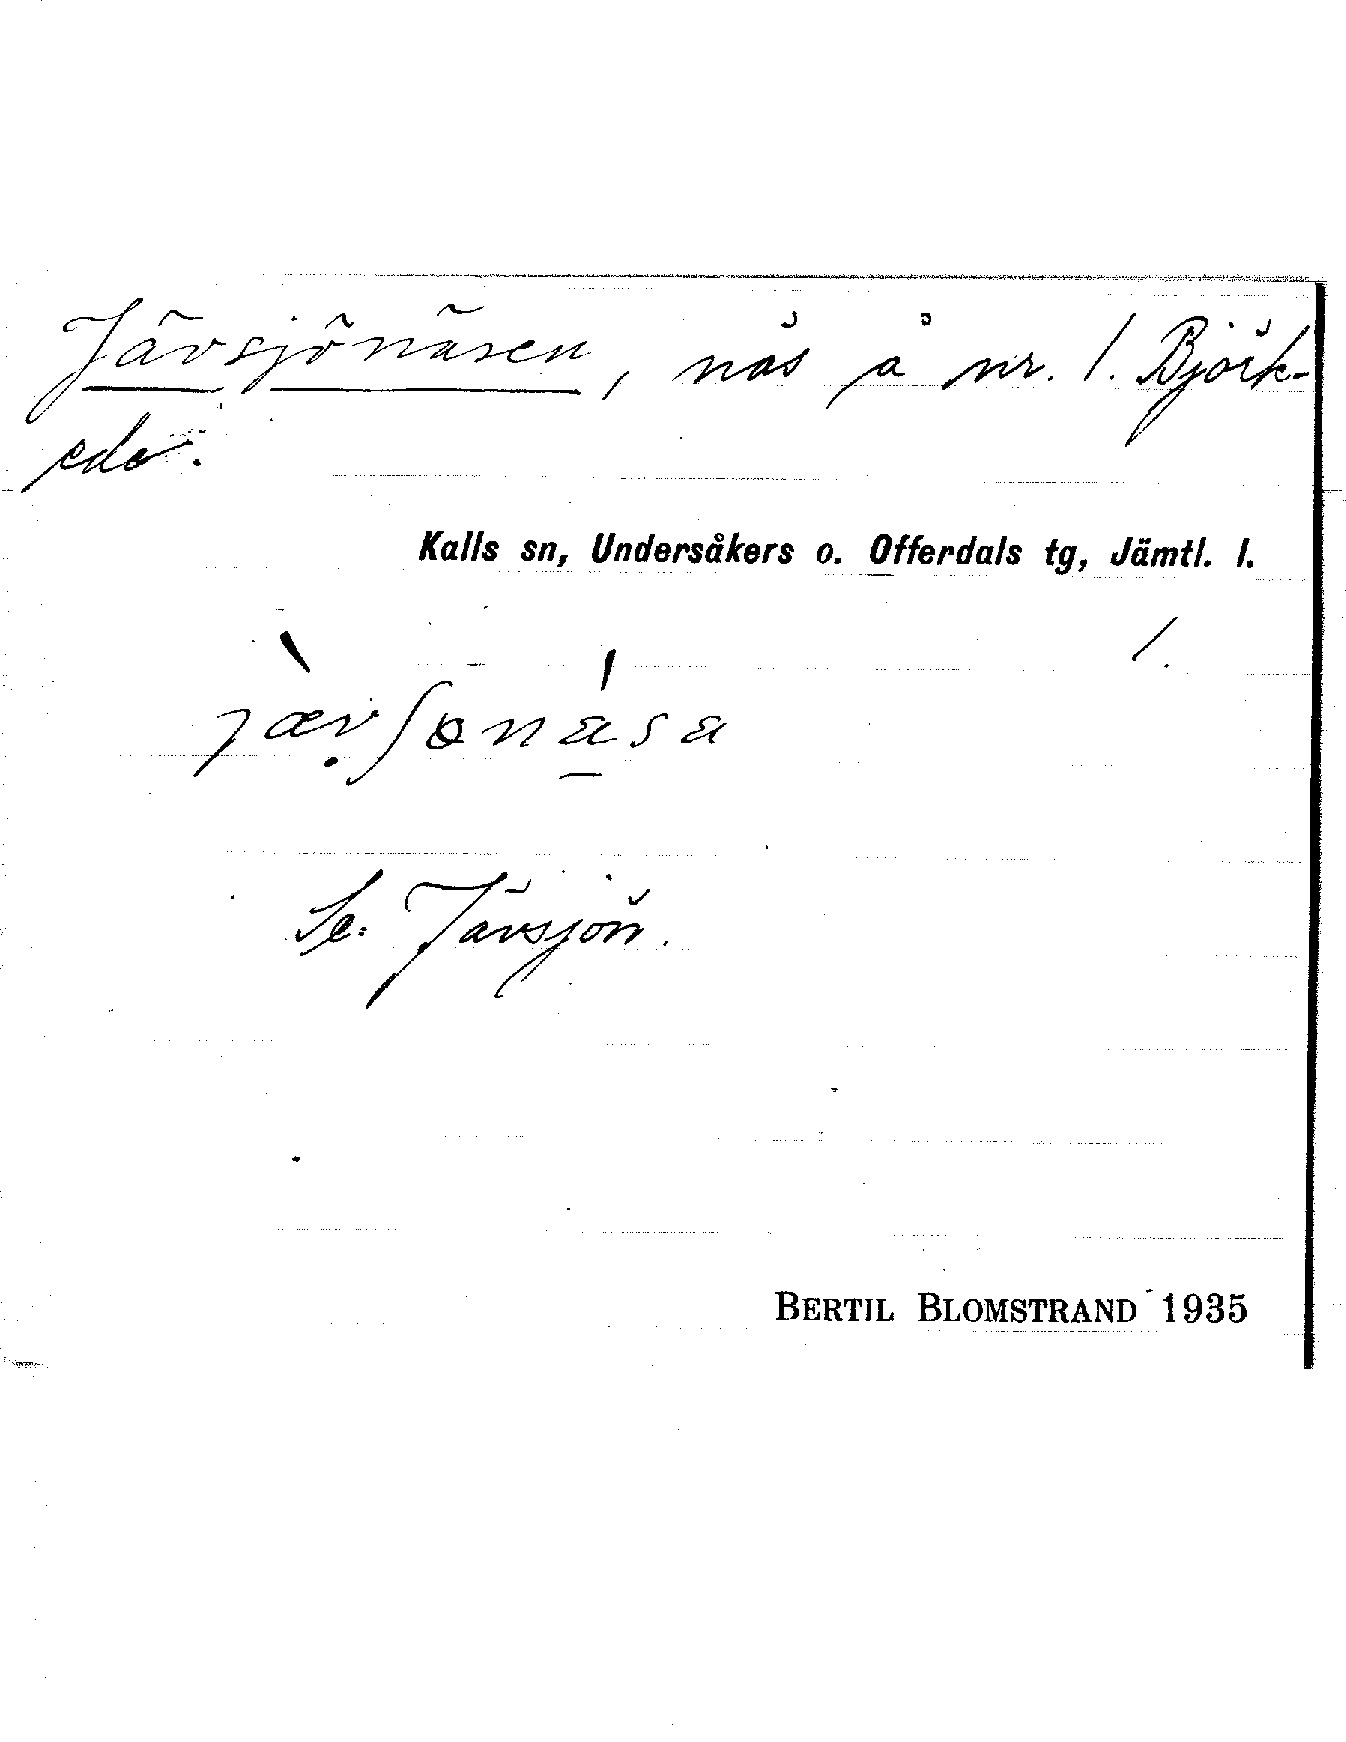 Jävsjönäsen, näs å nr. 1. Björk-
ede.
Kalls sn, Undersåkers o. Offerdals tg, Jämtl. l.
1.
Se: Jävsjön.
BERTIL BLOMSTRAND 1935